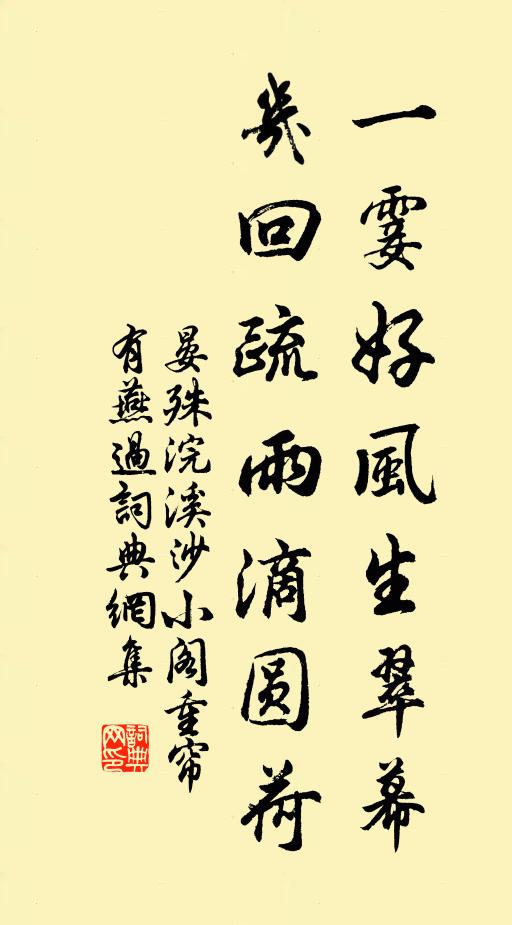 一霎好風生翠幕
幾回疏雨滴圓荷
晏殊浣溪沙小閣重帘
有燕過詞典網集
詞典
网印